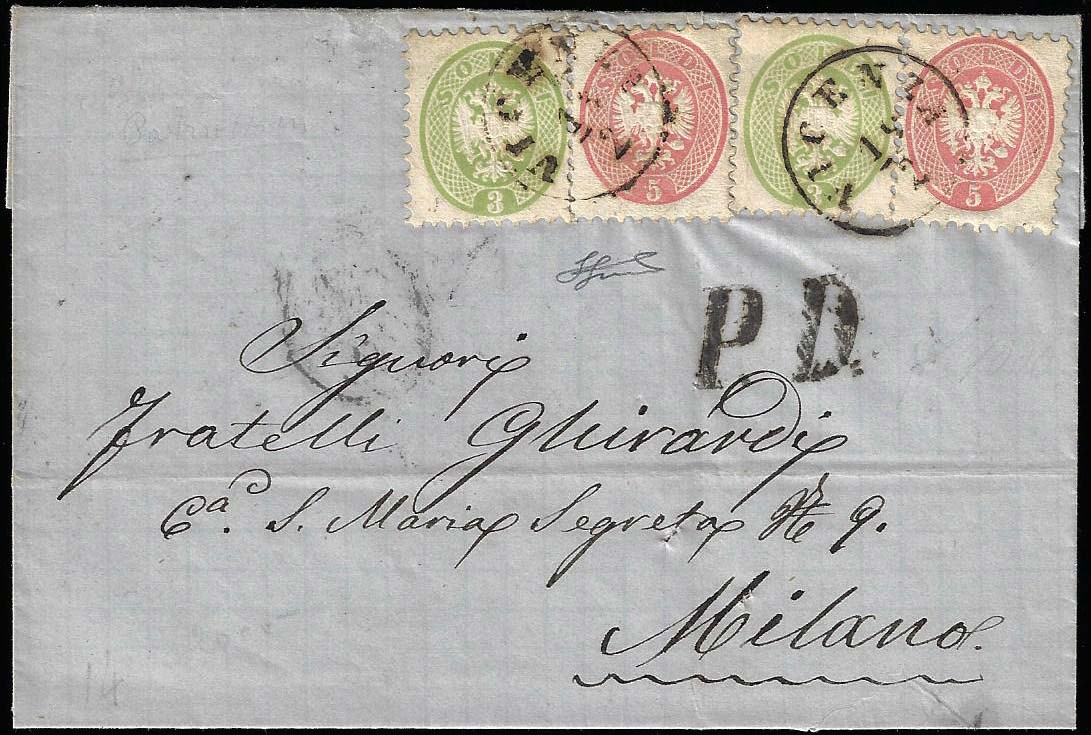 SOLDI 3 SOLDI 5 SOLDI 3 SOLDI 5
VICENZA
VICENZA
P.D.
Signori
Fratelli Ghirardi
Ca. S. Maria Segreta No 9.
Milano.
14